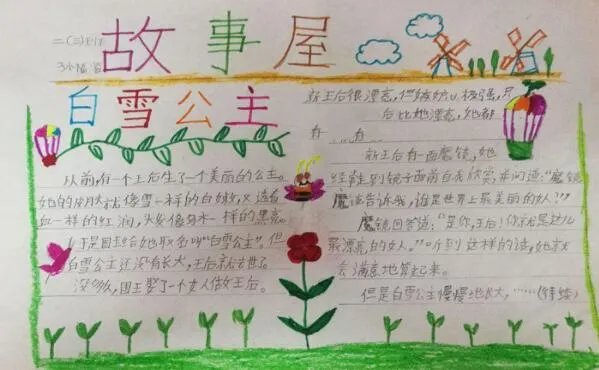 故事屋
二(三)班
白雪公主
从前,有一个王后生了一个美丽的公主。
她的皮肤就像雪一样的白嫩,又透着
血一样的红润,头发像乌木一样的黑亮。
于是国王给她取名叫“白雪公主”,但
白雪公主还没有长大,王后就去世了。
没多久,国王娶了一个女人做王后。
新王后很漂亮,但嫉妒心极强,只
后比她漂亮,她都
有
新王后有一面魔镜,她
经常到镜子面前自我欣赏,并问道:“魔镜
魔告诉我,谁是世界上最美丽的女人?”
魔镜回答道:“是你,王后!你就是这儿
最漂亮的女人。”听到这样的话,她就
会满意地笑起来。
但是白雪公主慢慢地长大,……(待续)